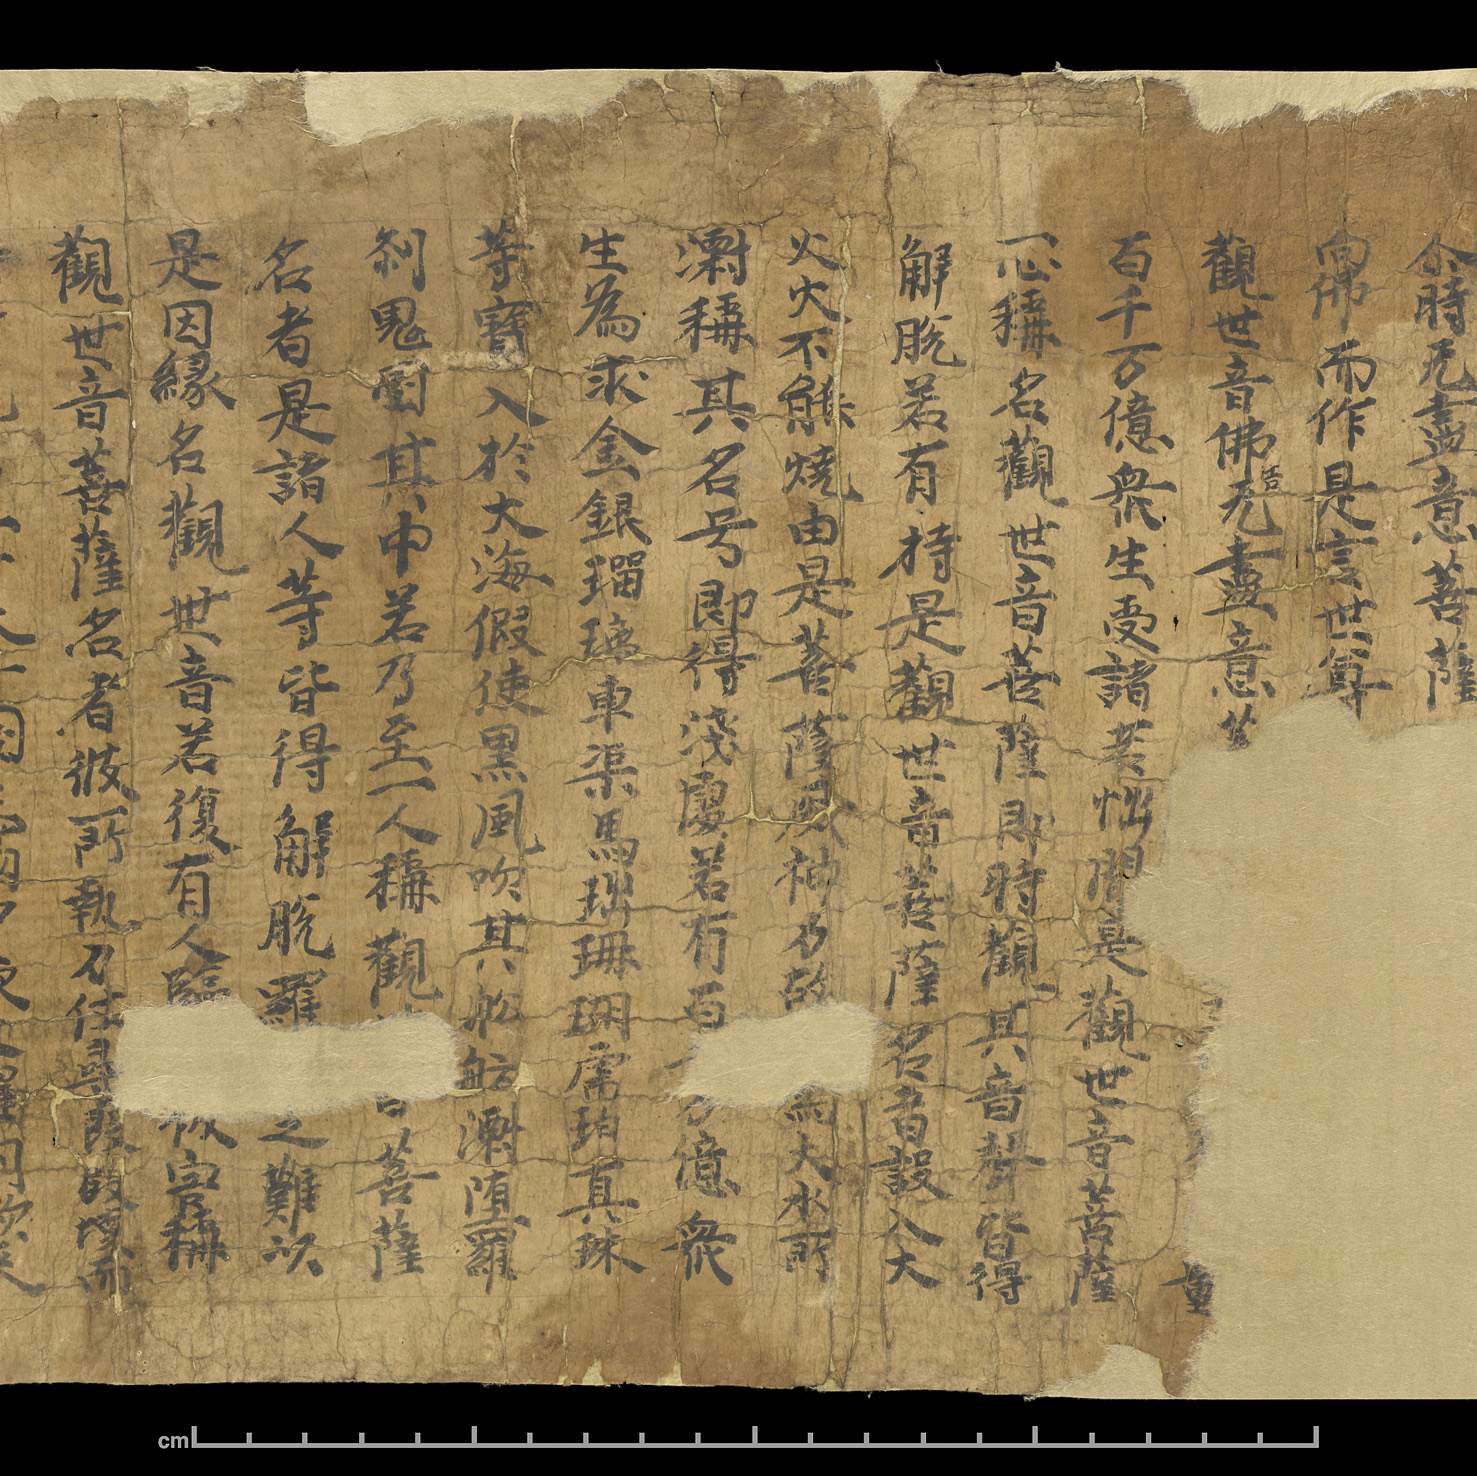 尒時无盡意菩薩
向佛而作是言世尊
觀世音佛告无盡意菩
百千万億衆生受諸苦惱聞是觀世音菩薩
一心稱名觀世音菩薩即時觀其音聲皆得
解脫若有持是觀世音菩薩名者設入大
火火不能燒由是菩薩威神力故 爲大水所
漂稱其名号即得淺處若有百 万億衆
生為求金銀瑠璃車渠馬瑙珊瑚虎珀真珠
等寶入於大海假使黑風吹其舩舫漂堕羅
刹鬼國其中若乃至一人稱觀 音菩薩
名者是諸人等皆得解脫羅 之難以
是因緣名觀世音若復有人臨 被害稱
觀世音菩薩名者彼所執刀仗尋段段壞而